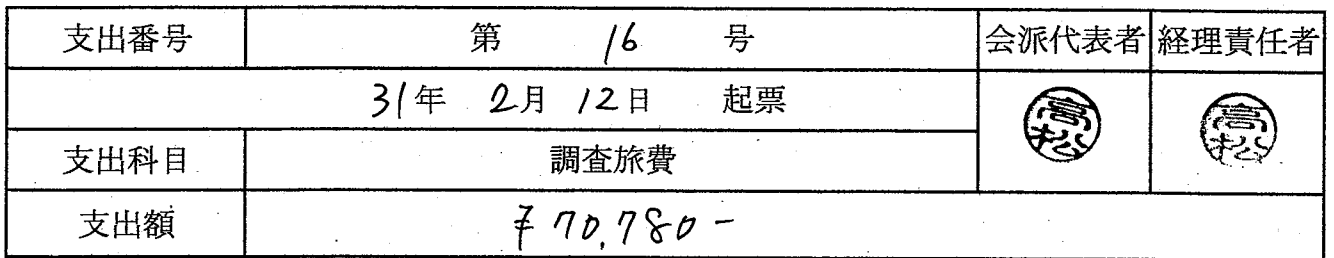 支出番号 第 16 号 会派代表者 経理責任者
31年 2月 12日 起票 高松 高松
支出科目 調査旅費
支出額 ¥70,780-